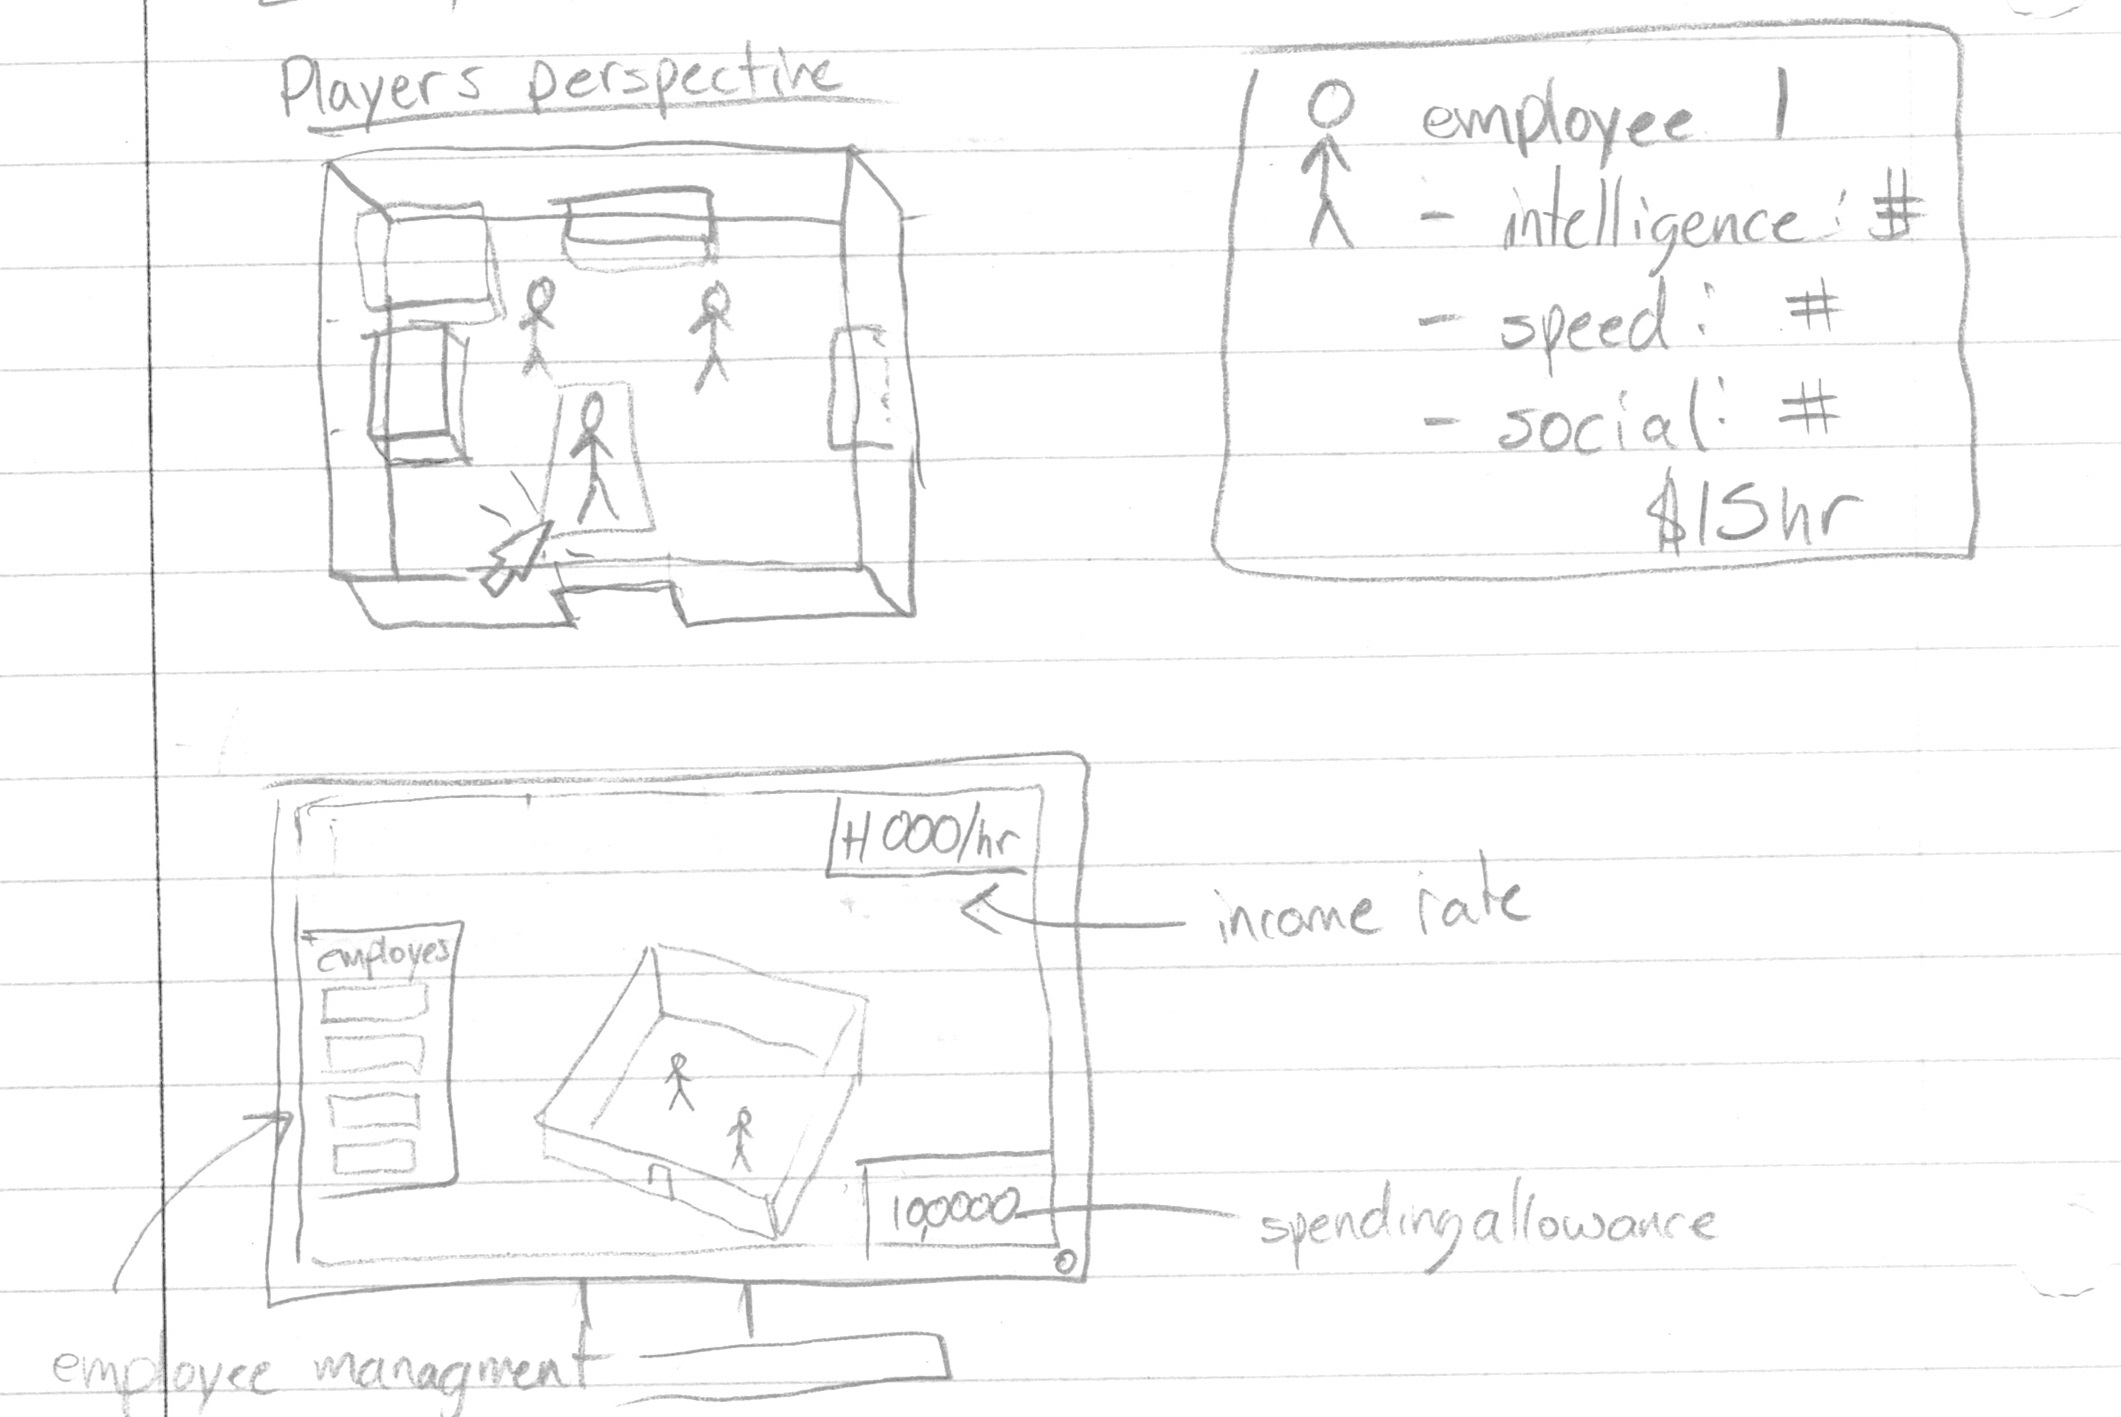 Players perspective
employee 1
- intelligence: #
- speed: #
- social: #
$15hr
+1000/hr
income rate
employes
100000
spending allowance
employee managment